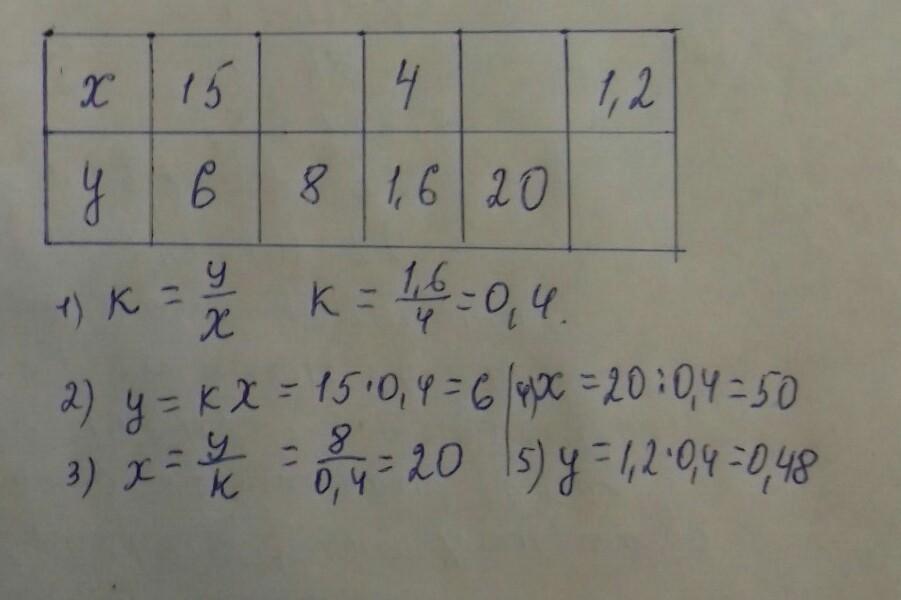 x 15 4 1,2
y 6 8 1,6 20
1) к = y/x к = 1,6/4 = 0,4.
2) y = кx = 15·0,4 = 6 | 4) x = 20:0,4 = 50
3) x = y/к = 8/0,4 = 20 | 5) y = 1,2·0,4 = 0,48